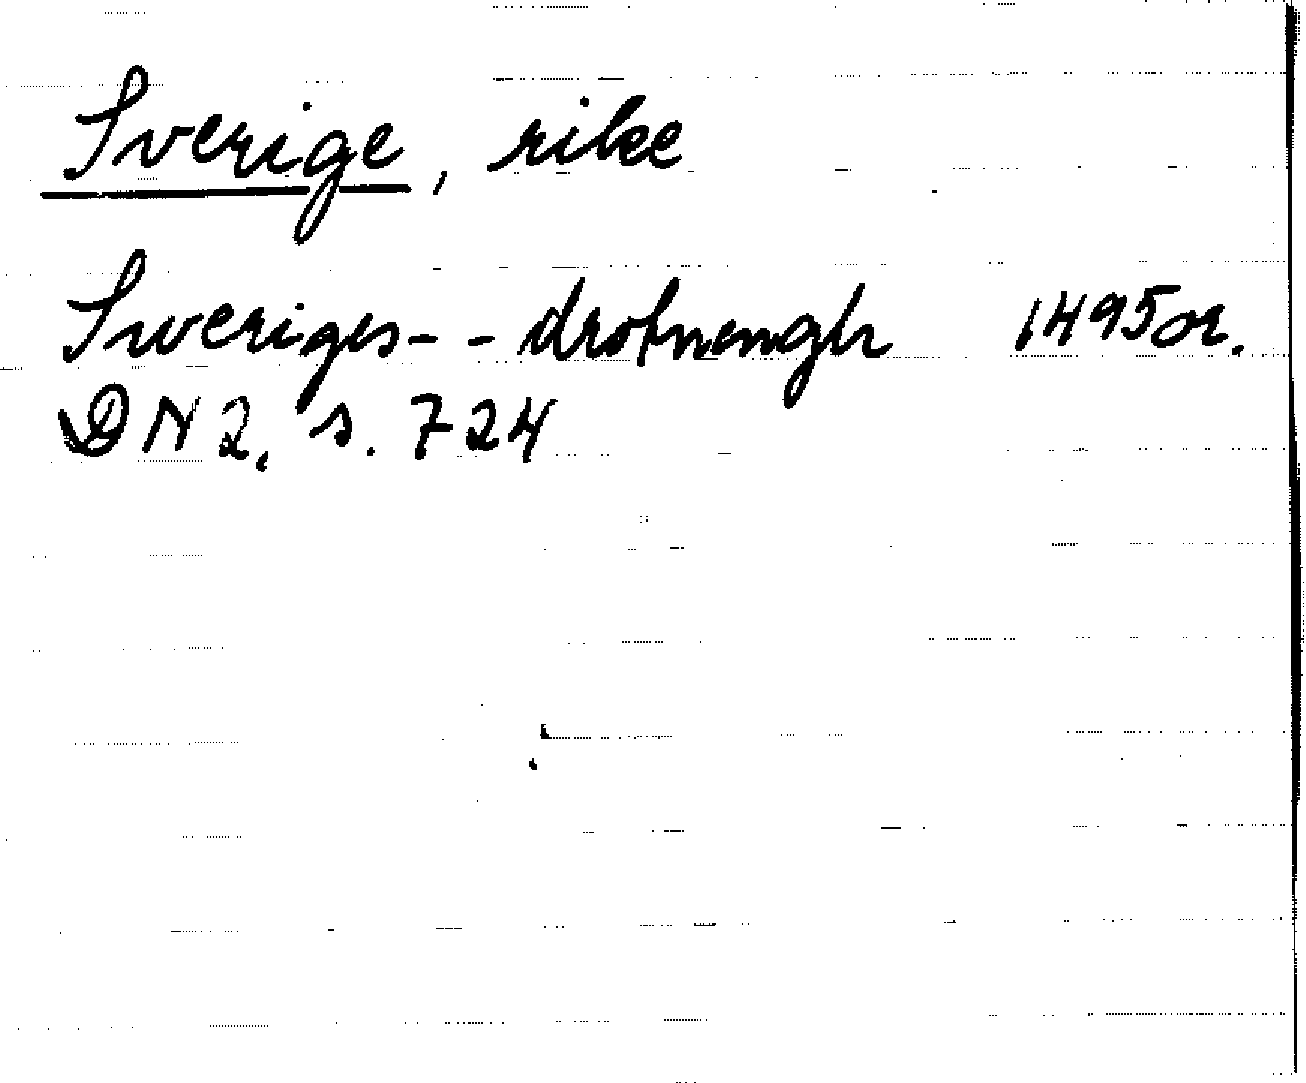 Sverige, rike
Sweriges - - drotnengh 1495 or.
DN 2, s. 724